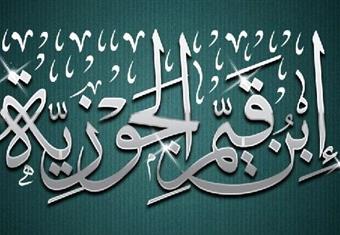 إبن قيّم الجوزيّة